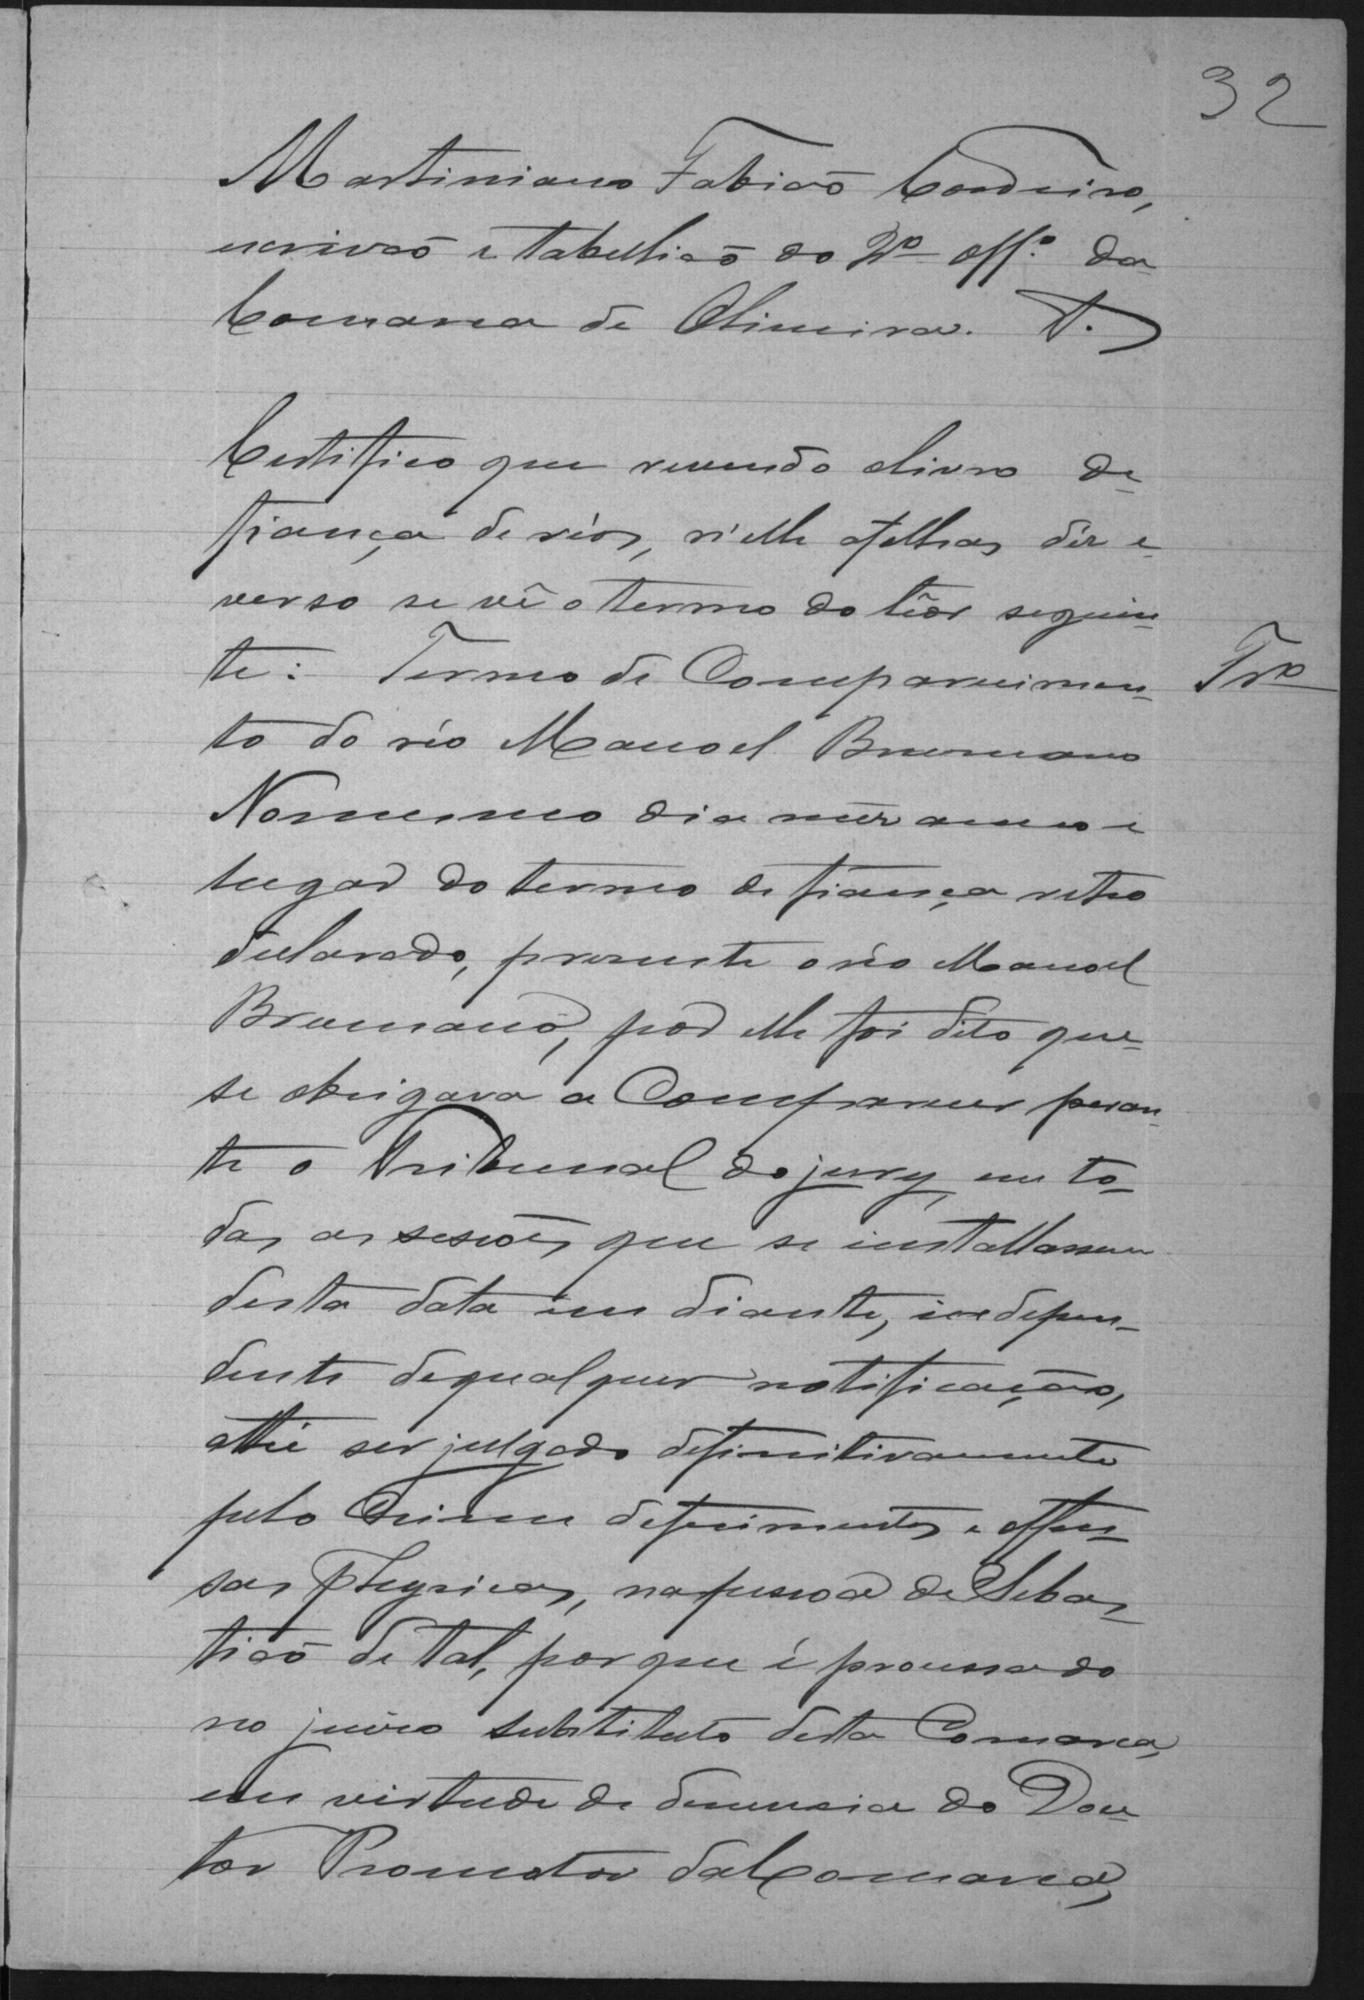 32
Martiniano Fabião Cordeiro,
escrivão e tabellião do 2º off.º da
Comarca de Oliveira. &.
Certifico que revendo o livro de
fiança de réos, n'elle a folhas déz e
verso se vê o termo do têor seguin-
te: Termo de Comparecimen- Trº
to do réo Manoel Brumano
No mesmo dia mêz anno e
lugar do termo de fiança retro
declarado, presente o réo Manoel
Brumano, por elle foi dito que
se obrigava a Comparecer peran-
te o Tribunal do jury, em to-
das as sessões que se installassem
desta data em diante, indepen-
dente de qualquer notificação,
athé ser julgado definitivamente
pelo Crime de ferimentos e offen-
sas physicas, na pessoa de Sebas-
tião de tal, por que é processado
no juizo substituto desta Comarca,
em virtude de denuncia do Dou-
tor Promotor da Comarca,